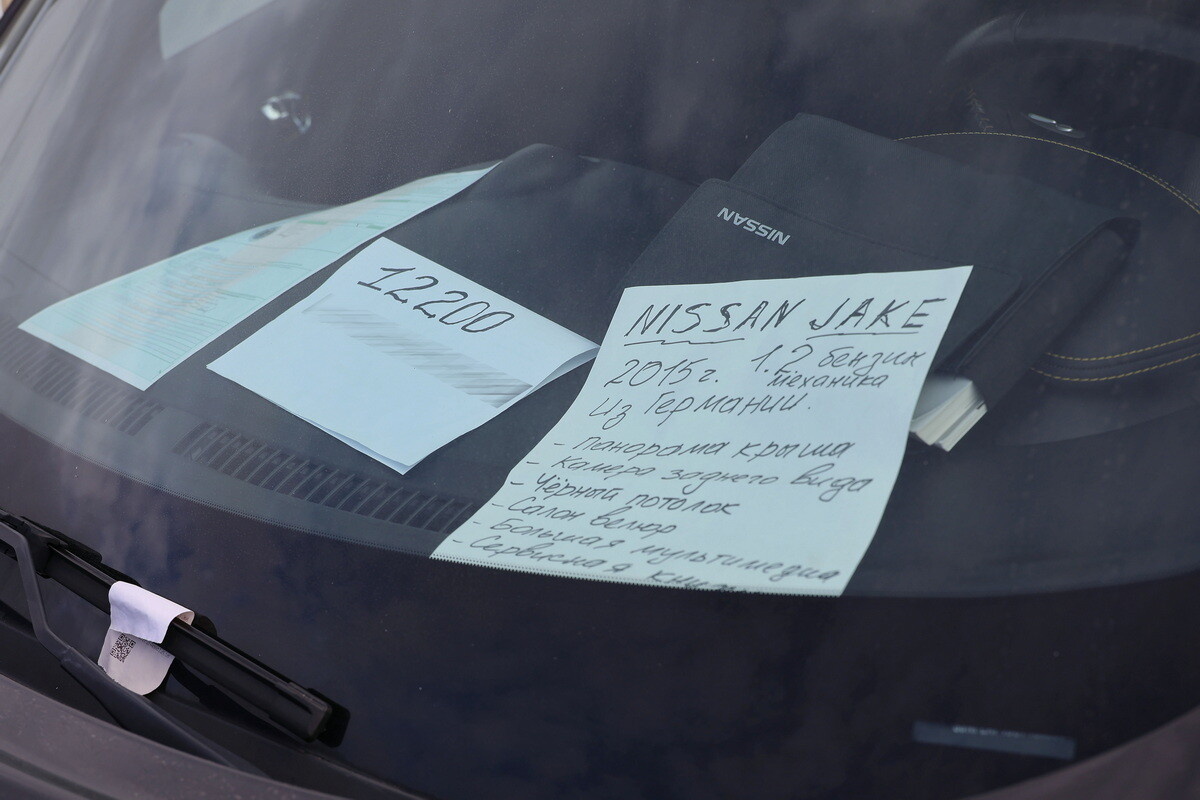 NISSAN
12200
NISSAN JAKE
2015г. 1.2 бензин
механика
из Германии.
- панорама крыша
- камера заднего вида
- Чёрный потолок
- Салон велюр
- Большая мультимедиа
- Сервисная